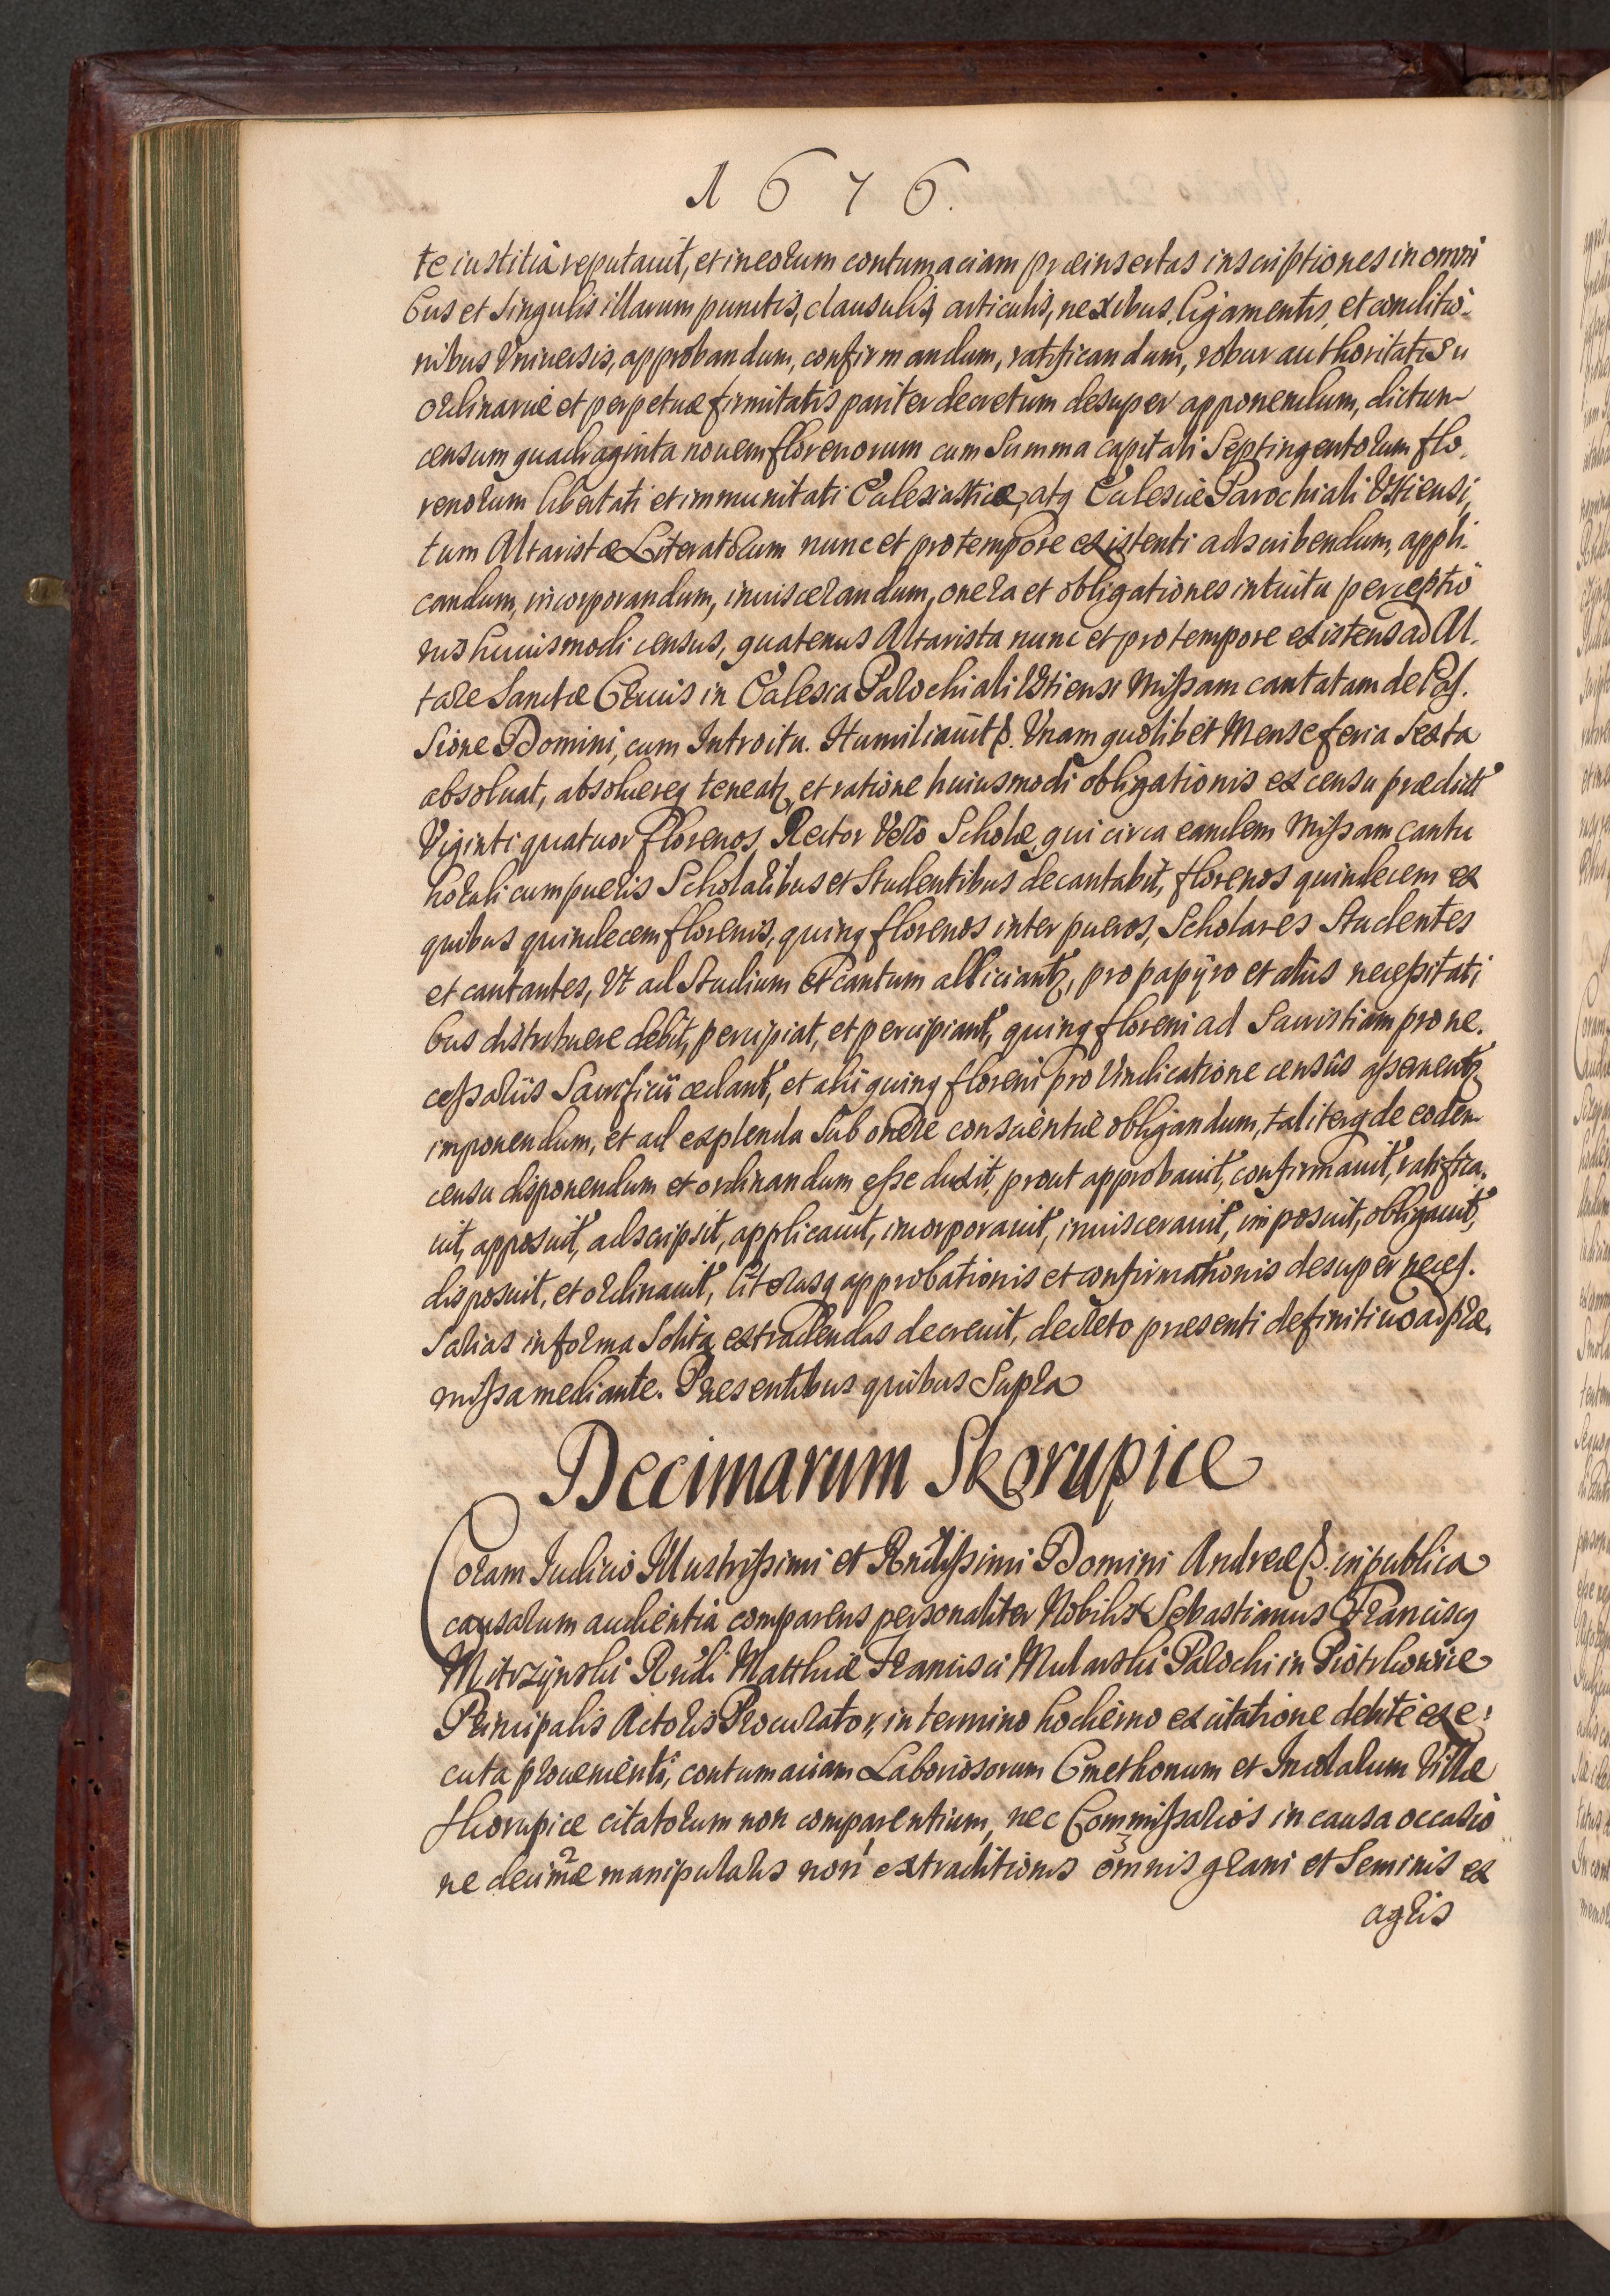 1676.
te iustitiâ reputauit, et in eorum contumaciam præinsertas inscriptiones in omni
bus et singulis illarum punctis, clausulis, articulis, nexibus, ligamentis, et conditio-
nibus Vniuersis, approbandum, confirmandum, ratificandum, robur authoritatis su
ordinariæ et perpetuæ firmitatis pariter decretum desuper apponendum, dictum
censum quadraginta nouem florenorum cum Summa capitali Septingentorum flo-
renorum libertati et immunitati Ecclesiasticæ, atq Ecclesiæ Parochiali Vstiensi,
tum Altaristæ Literatorum nunc et pro tempore existenti adscribendum, appli-
candum, incorporandum, inuiscerandum, onera et obligationes intuitu perceptio
nis huiusmodi census, quatenus Altarista nunc et pro tempore existens ad Al-
tare Sanctæ Crucis in Ecclesia Parochiali Vstiensi Missam cantatam de Pas-
sione Domini, cum Introitu. Humiliauit p. Vnam quolibet Mense feria sexta
absoluat, absoluereq teneatz, et ratione huiusmodi obligationis ex censu prædicto
Viginti quatuor florenos, Rector Vero Scholæ, qui circa eandem Missam cantu
horali cum pueris Scholaribus et Studentibus decantabit, florenos quindecem ex
quibus quindecem florenis, quinq florenos inter pueros, Scholares Studentes
et cantantes, Vt ad Studium et cantum alliciantz, pro papÿro et aliis necessitati
bus distribuere debit, percipiat, et percipiant, quinq floreni ad Sacristiam pro ne-
cessariis Sacrificii cedant, et alii quinq floreni pro Vindicatione census asseruentz
imponendum, et ad explenda sub onere conscientiæ obligandum, taliterq de eodem
censu disponendum et ordinandum esse duxit, prout approbauit, confirmauit, ratifica-
uit, apposuit, adscripsit, applicauit, incorporauit, inuiscerauit, imposuit, obligauit,
disposuit, et ordinauit, literasq approbationis et confirmationis desuper neces-
sarias in forma solita extradendas decreuit, decreto præsenti definitiuo ad præ-
missa mediante. Præsentibus quibus Supra
Decimarum Skorupice
Coram Iudicio Illustrissimi et Rndissimi Domini Andreæ p. in publica
causarum audientia comparens personaliter Nobilis Sebastianus Francisq
Mitrzÿnski Rndi Matthiæ Francisci Mularski Parochi in Piotrkowice
Principalis Actoris Procurator, in termino hodierno ex citatione debitè exe-
cuta proueniente, contumaciam Laboriosorum Cmethonum et Incolarum Villæ
Skorupice citatorum non comparentium, nec Commissarios in causa occasio
ne decimæ manipularis non extraditionis omnis grani et Seminis ex
agris